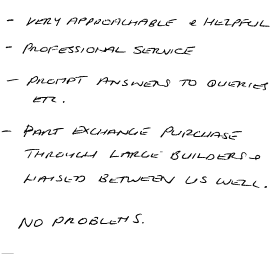 - VERY APPROACHABLE & HELPFUL
- PROFESSIONAL SERVICE
- PROMPT ANSWERS TO QUERIES
ETC.
- PART EXCHANGE PURCHASE
THROUGH LARGE BUILDERS &
LIAISED BETWEEN US WELL.
NO PROBLEMS.